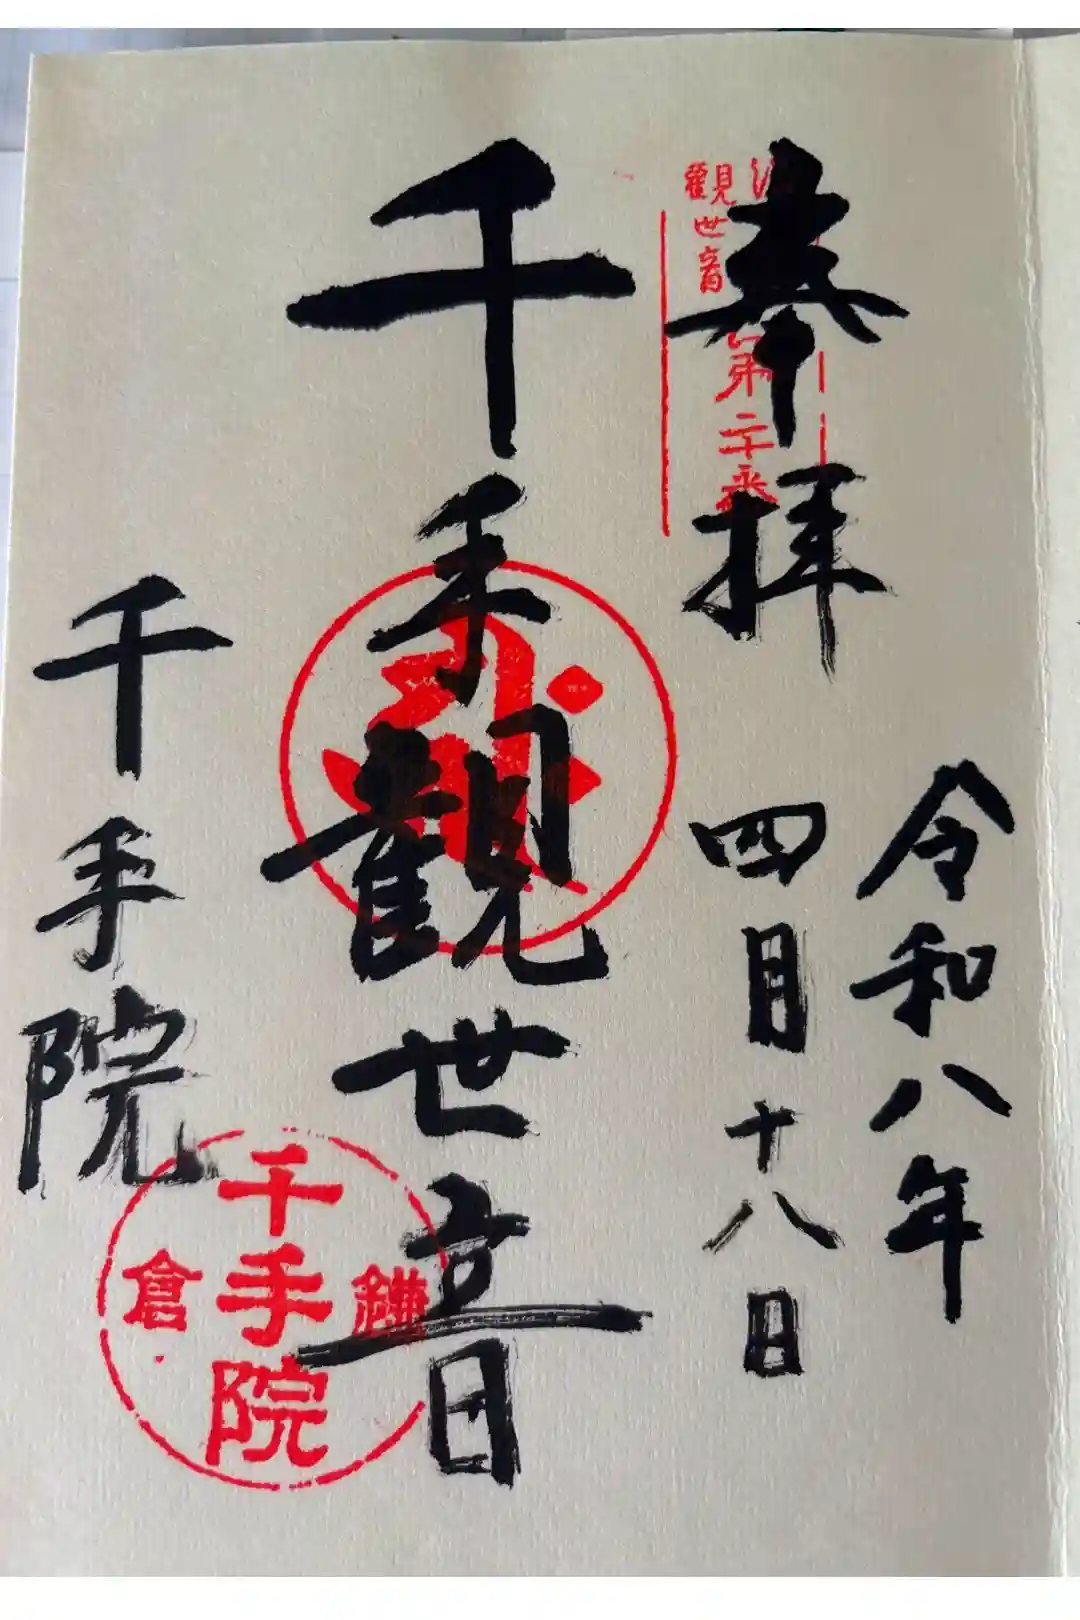 奉拝
令和八年
四月十八日
千手観世音
千手院
観世音
第二十番
千手院
鎌倉